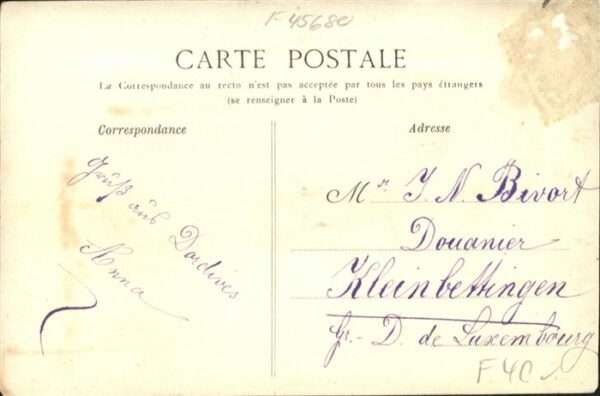 F 4568c
CARTE POSTALE
La Correspondance au recto n'est pas acceptée par tous les pays étrangers
(se renseigner à la Poste)
Correspondance
Adresse
Gruß aus Dordives
Anna
Mr J. N. Bivort
Douanier
Kleinbettingen
Gr.- D. de Luxembourg
F4C